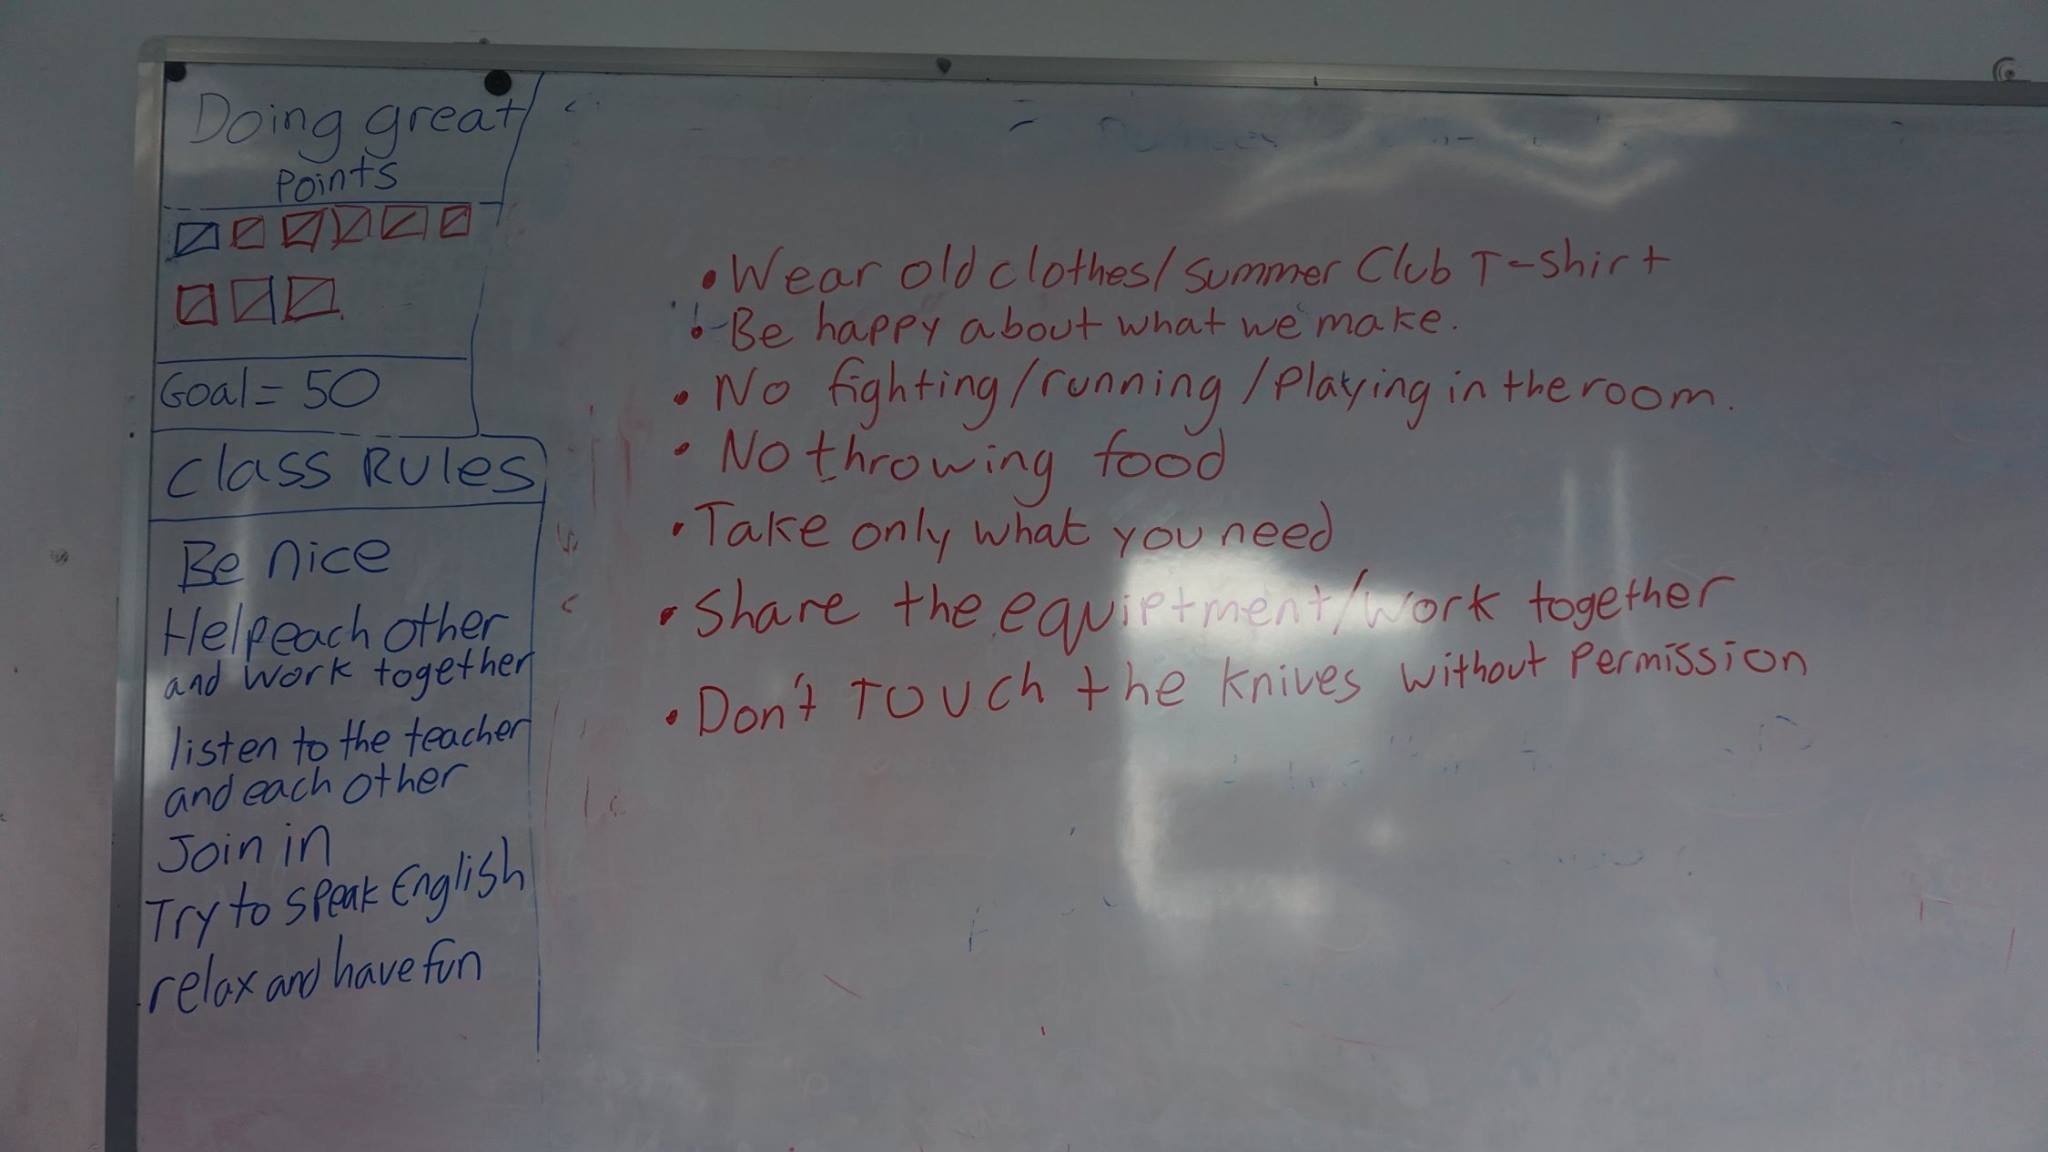 Doing great
Points
Goal = 50
Class Rules
Be nice
Help each other
and work together
listen to the teacher
and each other
Join in
Try to speak English
relax and have fun
• Wear old clothes/Summer Club T-shirt
• Be happy about what we make.
• No fighting/running/Playing in the room.
• No throwing food
• Take only what you need
• Share the equiptment/work together
• Don't touch the knives without Permission